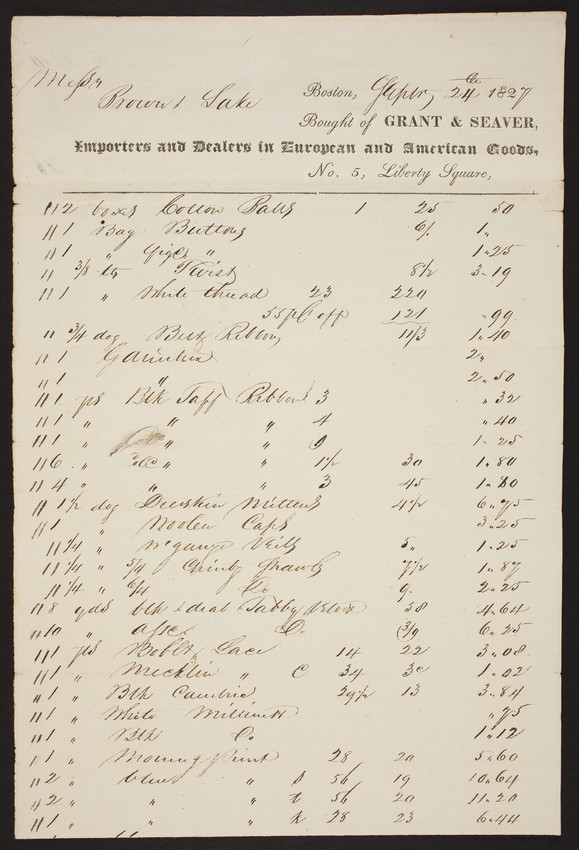 Messrs
Brown & Lake
Boston, Septr, 24th 1827
Bought of GRANT & SEAVER,
Importers and Dealers in European and American Goods,
No. 5, Liberty Square,
" 2 boxes Cotton Balls 1 25 50
" 1 Bag Buttons 6/. 1 "
" 1 " Gilt " 1 " 25
" 3/8 lb Twist 8 1/2 3 " 19
" 1 " White thread 23 220
55 pCt off 121 " 99
" 3/4 doz Belt Ribbons 11/3 1 " 40
" 1 2 "
" 1 " 2 " 50
" 1 ps Blk Taff Ribbons 3 " 32
" 1 " " " 4 " 40
" 1 " " " 9 1 " 25
" 6 " Cold " " 1 1/2 30 1 " 80
" 4 " " " 3 45 1 " 80
" 1 1/2 doz Deerskin Mittens 4 1/2 6 " 75
" 1 " Woolen Caps 3 " 25
" 1/4 " gauze Veils 5 " 1 " 25
" 1/4 " 5/4 Shawls 7 1/2 1 " 87
" 1/4 " 6/4 Do. 9 " 2 " 25
" 8 yds blk & drab Tabby Velvet 58 4 " 64
" 10 " Asst. Do. 3/9 6 " 25
" 1 ps Bobbt Lace 14 22 3 " 08
" 1 " Mecklin " C 34 3c 1 " 02
" 1 " Blk Cambric 29 1/2 13 3 " 84
" 1 " White Millinett " 75
" 1 " Blk Do 1 " 12
" 1 " Morning Print 28 20 5 " 60
" 2 " blue " 56 19 10 " 64
" 2 " " " 56 20 11 " 20
" 1 " " " K 28 23 6 " 44